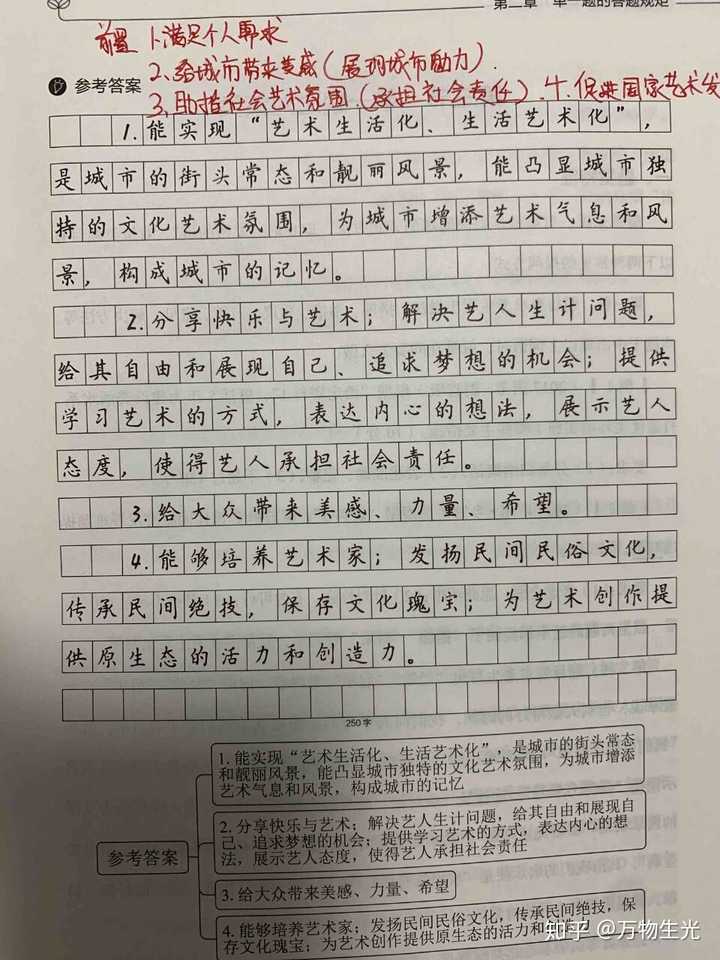 第二章 单一题的答题规矩
前置 1.满足个人要求
2.给城市带来美感(展现城市助力).
参考答案
3.助推社会艺术氛围.(承担社会责任).4.促进国家艺术发
1.能实现“艺术生活化、生活艺术化”,
是城市的街头常态和靓丽风景,能凸显城市独
特的文化艺术氛围,为城市增添艺术气息和风
景,构成城市的记忆。
2.分享快乐与艺术;解决艺人生计问题,
给其自由和展现自己、追求梦想的机会;提供
学习艺术的方式,表达内心的想法,展示艺人
态度,使得艺人承担社会责任。
3.给大众带来美感、力量、希望。
4.能够培养艺术家;发扬民间民俗文化,
传承民间绝技,保存文化瑰宝;为艺术创作提
供原生态的活力和创造力。
250字
1.能实现“艺术生活化、生活艺术化”,是城市的街头常态
和靓丽风景,能凸显城市独特的文化艺术氛围,为城市增添
艺术气息和风景,构成城市的记忆
2.分享快乐与艺术;解决艺人生计问题,给其自由和展现自
己、追求梦想的机会;提供学习艺术的方式,表达内心的想
法,展示艺人态度,使得艺人承担社会责任
参考答案
3.给大众带来美感、力量、希望
4.能够培养艺术家;发扬民间民俗文化,传承民间绝技,保
存文化瑰宝;为艺术创作提供原生态的活力和创造力
知乎 @万物生光